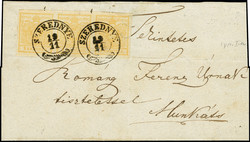 SZEREDNYE
19
11
SZEREDNYE
19
11
Tekintetes
Romang Ferenz Úrnak
tisztelettel
Munkáts